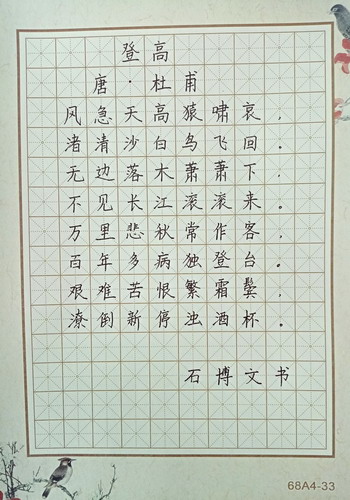 登高
唐·杜甫
风急天高猿啸哀，
渚清沙白鸟飞回。
无边落木萧萧下，
不见长江滚滚来。
万里悲秋常作客，
百年多病独登台。
艰难苦恨繁霜鬓，
潦倒新停浊酒杯。
石博文书
68A4-33